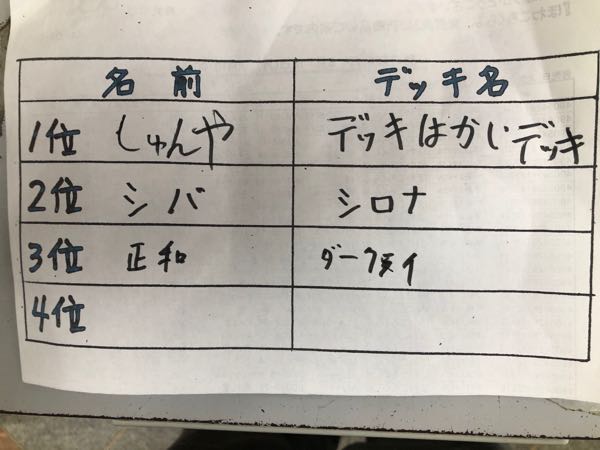 名前 デッキ名
1位 しゅんや デッキはかいデッキ
2位 シバ シロナ
3位 正和
4位